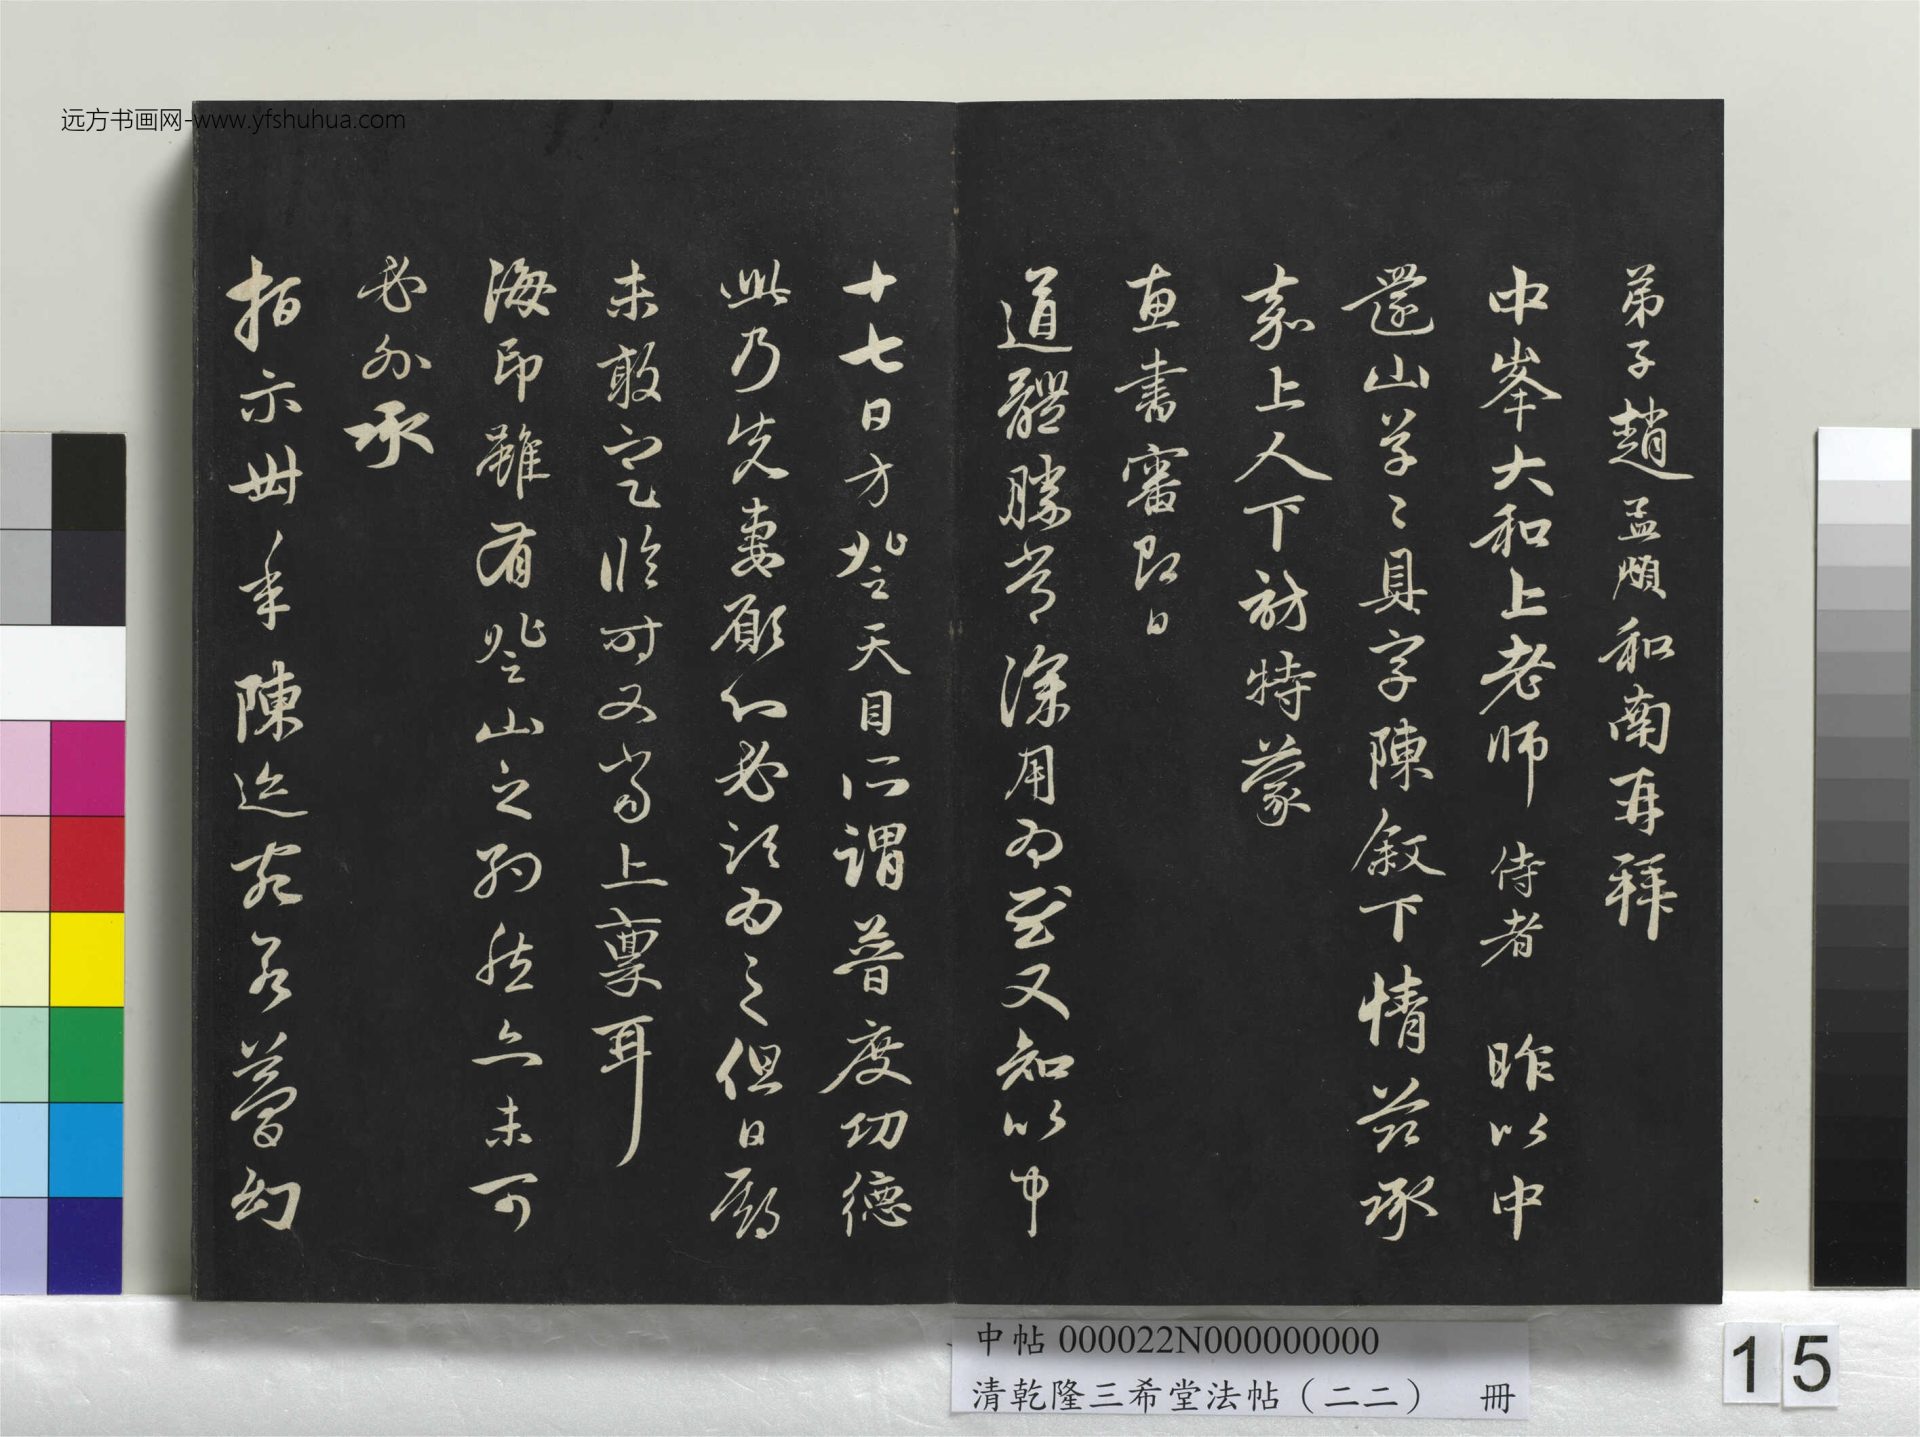 远方书画网-www.yfshuhua.com
弟子趙孟頫和南再拜
中峯大和上老师侍者 昨以中
還山草〻具字陳叙下情茲承
嘉上人下訪特蒙
惠書審即日
道體勝常深用为慰又知以中
十七日方登天目所謂普度功德
此乃先妻願心必須为之但日辰
未敢定臨时又当上禀耳
海印雖有登山之約然亦未可
必外承
指示卅年陳迹宛若夢幻
中帖 000022N000000000
清乾隆三希堂法帖（二二） 冊
15